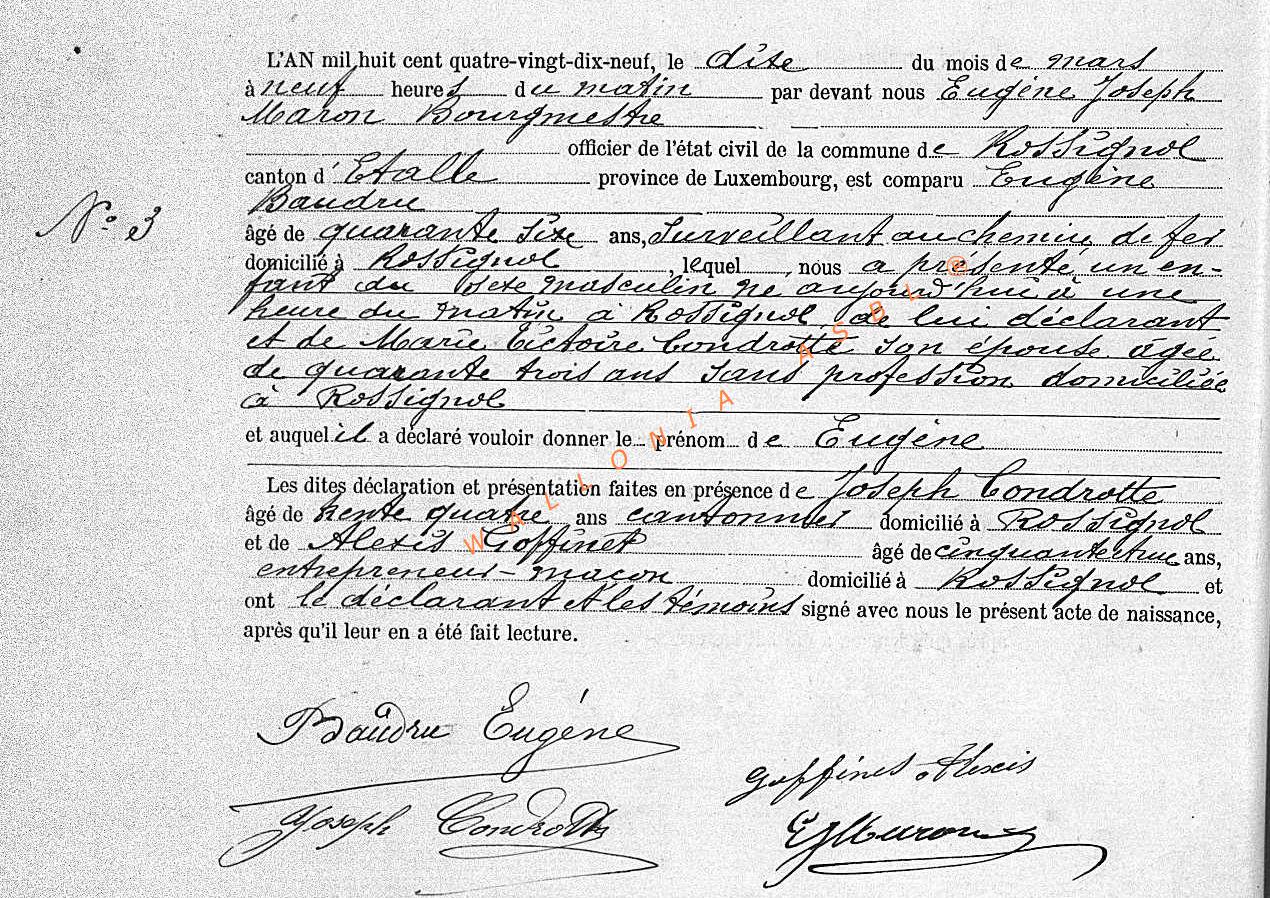 L'AN mil huit cent quatre-vingt-dix-neuf, le dixe du mois de mars
à neuf heures du matin par devant nous Eugène Joseph
Maron Bourgmestre
officier de l'état civil de la commune de Rossignol
canton d'Etalle province de Luxembourg, est comparu Eugène
Baudru
N° 3
âgé de quarante sixe ans, surveillant au chemin de fer
domicilié à Rossignol, lequel, nous a présenté un en-
fant du sexe masculin né aujourd'hui à une
heure du matin à Rossignol, de lui déclarant
et de Marie Victoire Condrotte son épouse agée
de quarante trois ans sans profession domiciliée
à Rossignol
et auquel il a déclaré vouloir donner le prénom de Eugène
Les dites déclaration et présentation faites en présence de Joseph Condrotte
âgé de trente quatre ans cantonnier domicilié à Rossignol
et de Alexis Goffinet âgé de ans,
entrepreneur-maçon domicilié à Rossignol et
ont le déclarant et les témoins signé avec nous le présent acte de naissance,
après qu'il leur en a été fait lecture.
Baudru Eugène
Goffinet Alexis
Joseph Condrotte
EJMaron
WALLONIA ASBL @